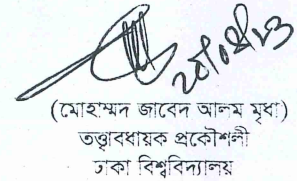 (মোহাম্মদ জাবেদ আলম মৃধা)
তত্ত্বাবধায়ক প্রকৌশলী
ঢাকা বিশ্ববিদ্যালয়